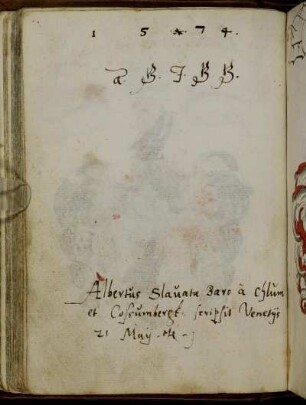 1 5 74.
Æ. B. J. B B.
Albertus Slavata Baro à Chlum
et Cossumbergk scripsit Venetijs
21 Maij etc